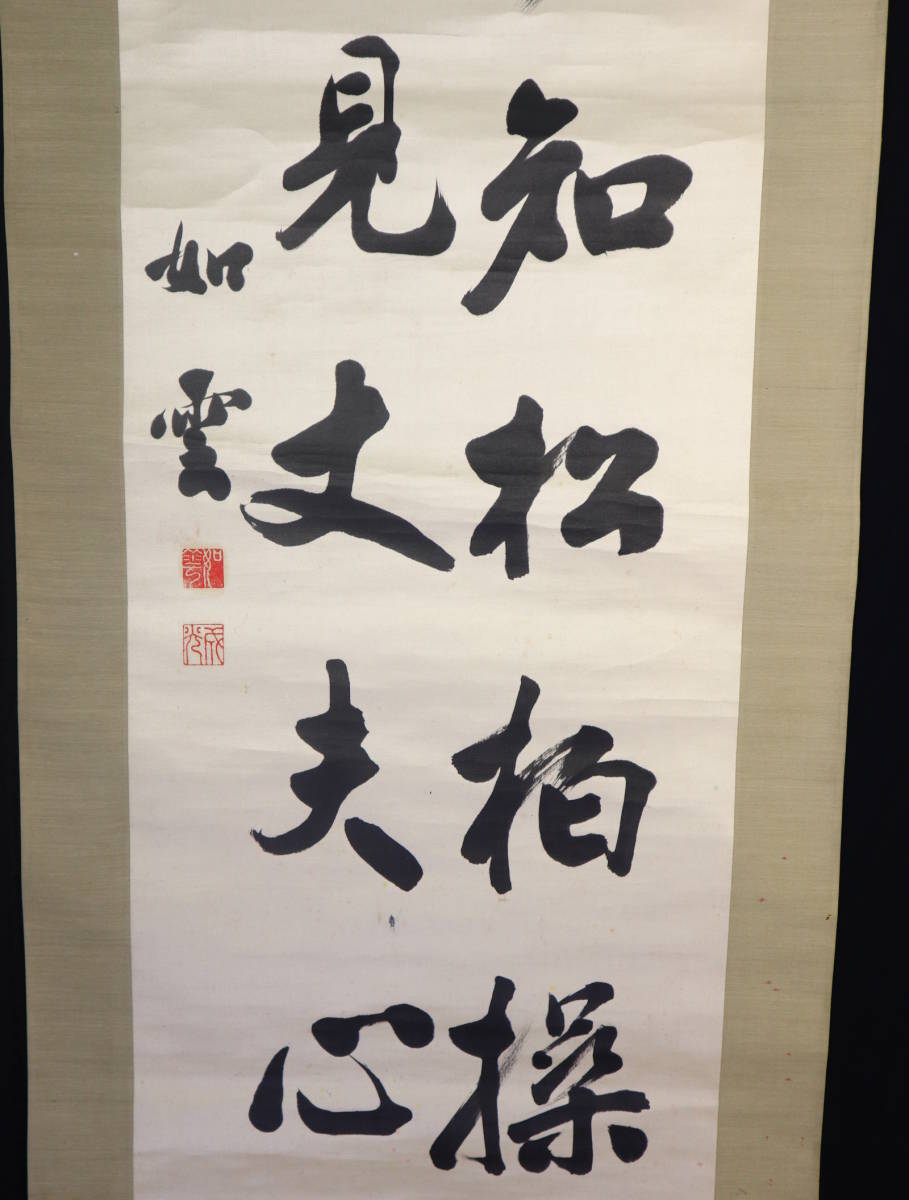 知松柏操
見丈夫心
如雲